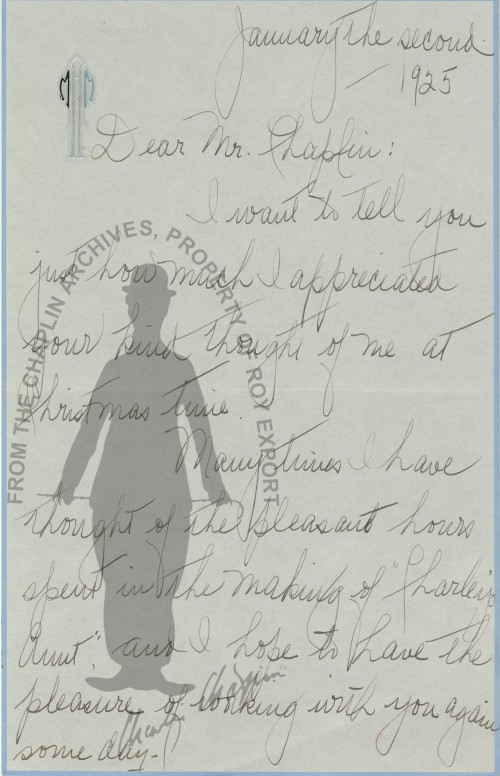 January the second
1925
M M
Dear Mr. Chaplin:
I want to tell you
just how much I appreciated
your kind thought of me at
Christmas time.
Many times I have
thought of the pleasant hours
spent in the making of "Charley's
Aunt", and I hope to have the
pleasure of working with you again
some day-
FROM THE CHAPLIN ARCHIVES, PROPERTY OF ROY EXPORT
Charles Chaplin™